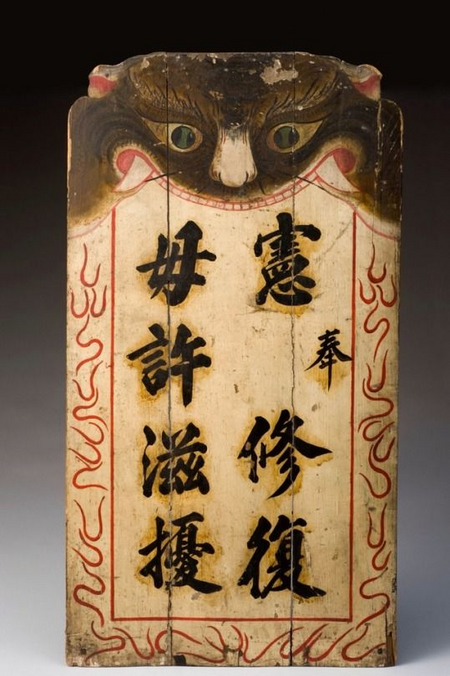 奉
憲修復
毋許滋擾